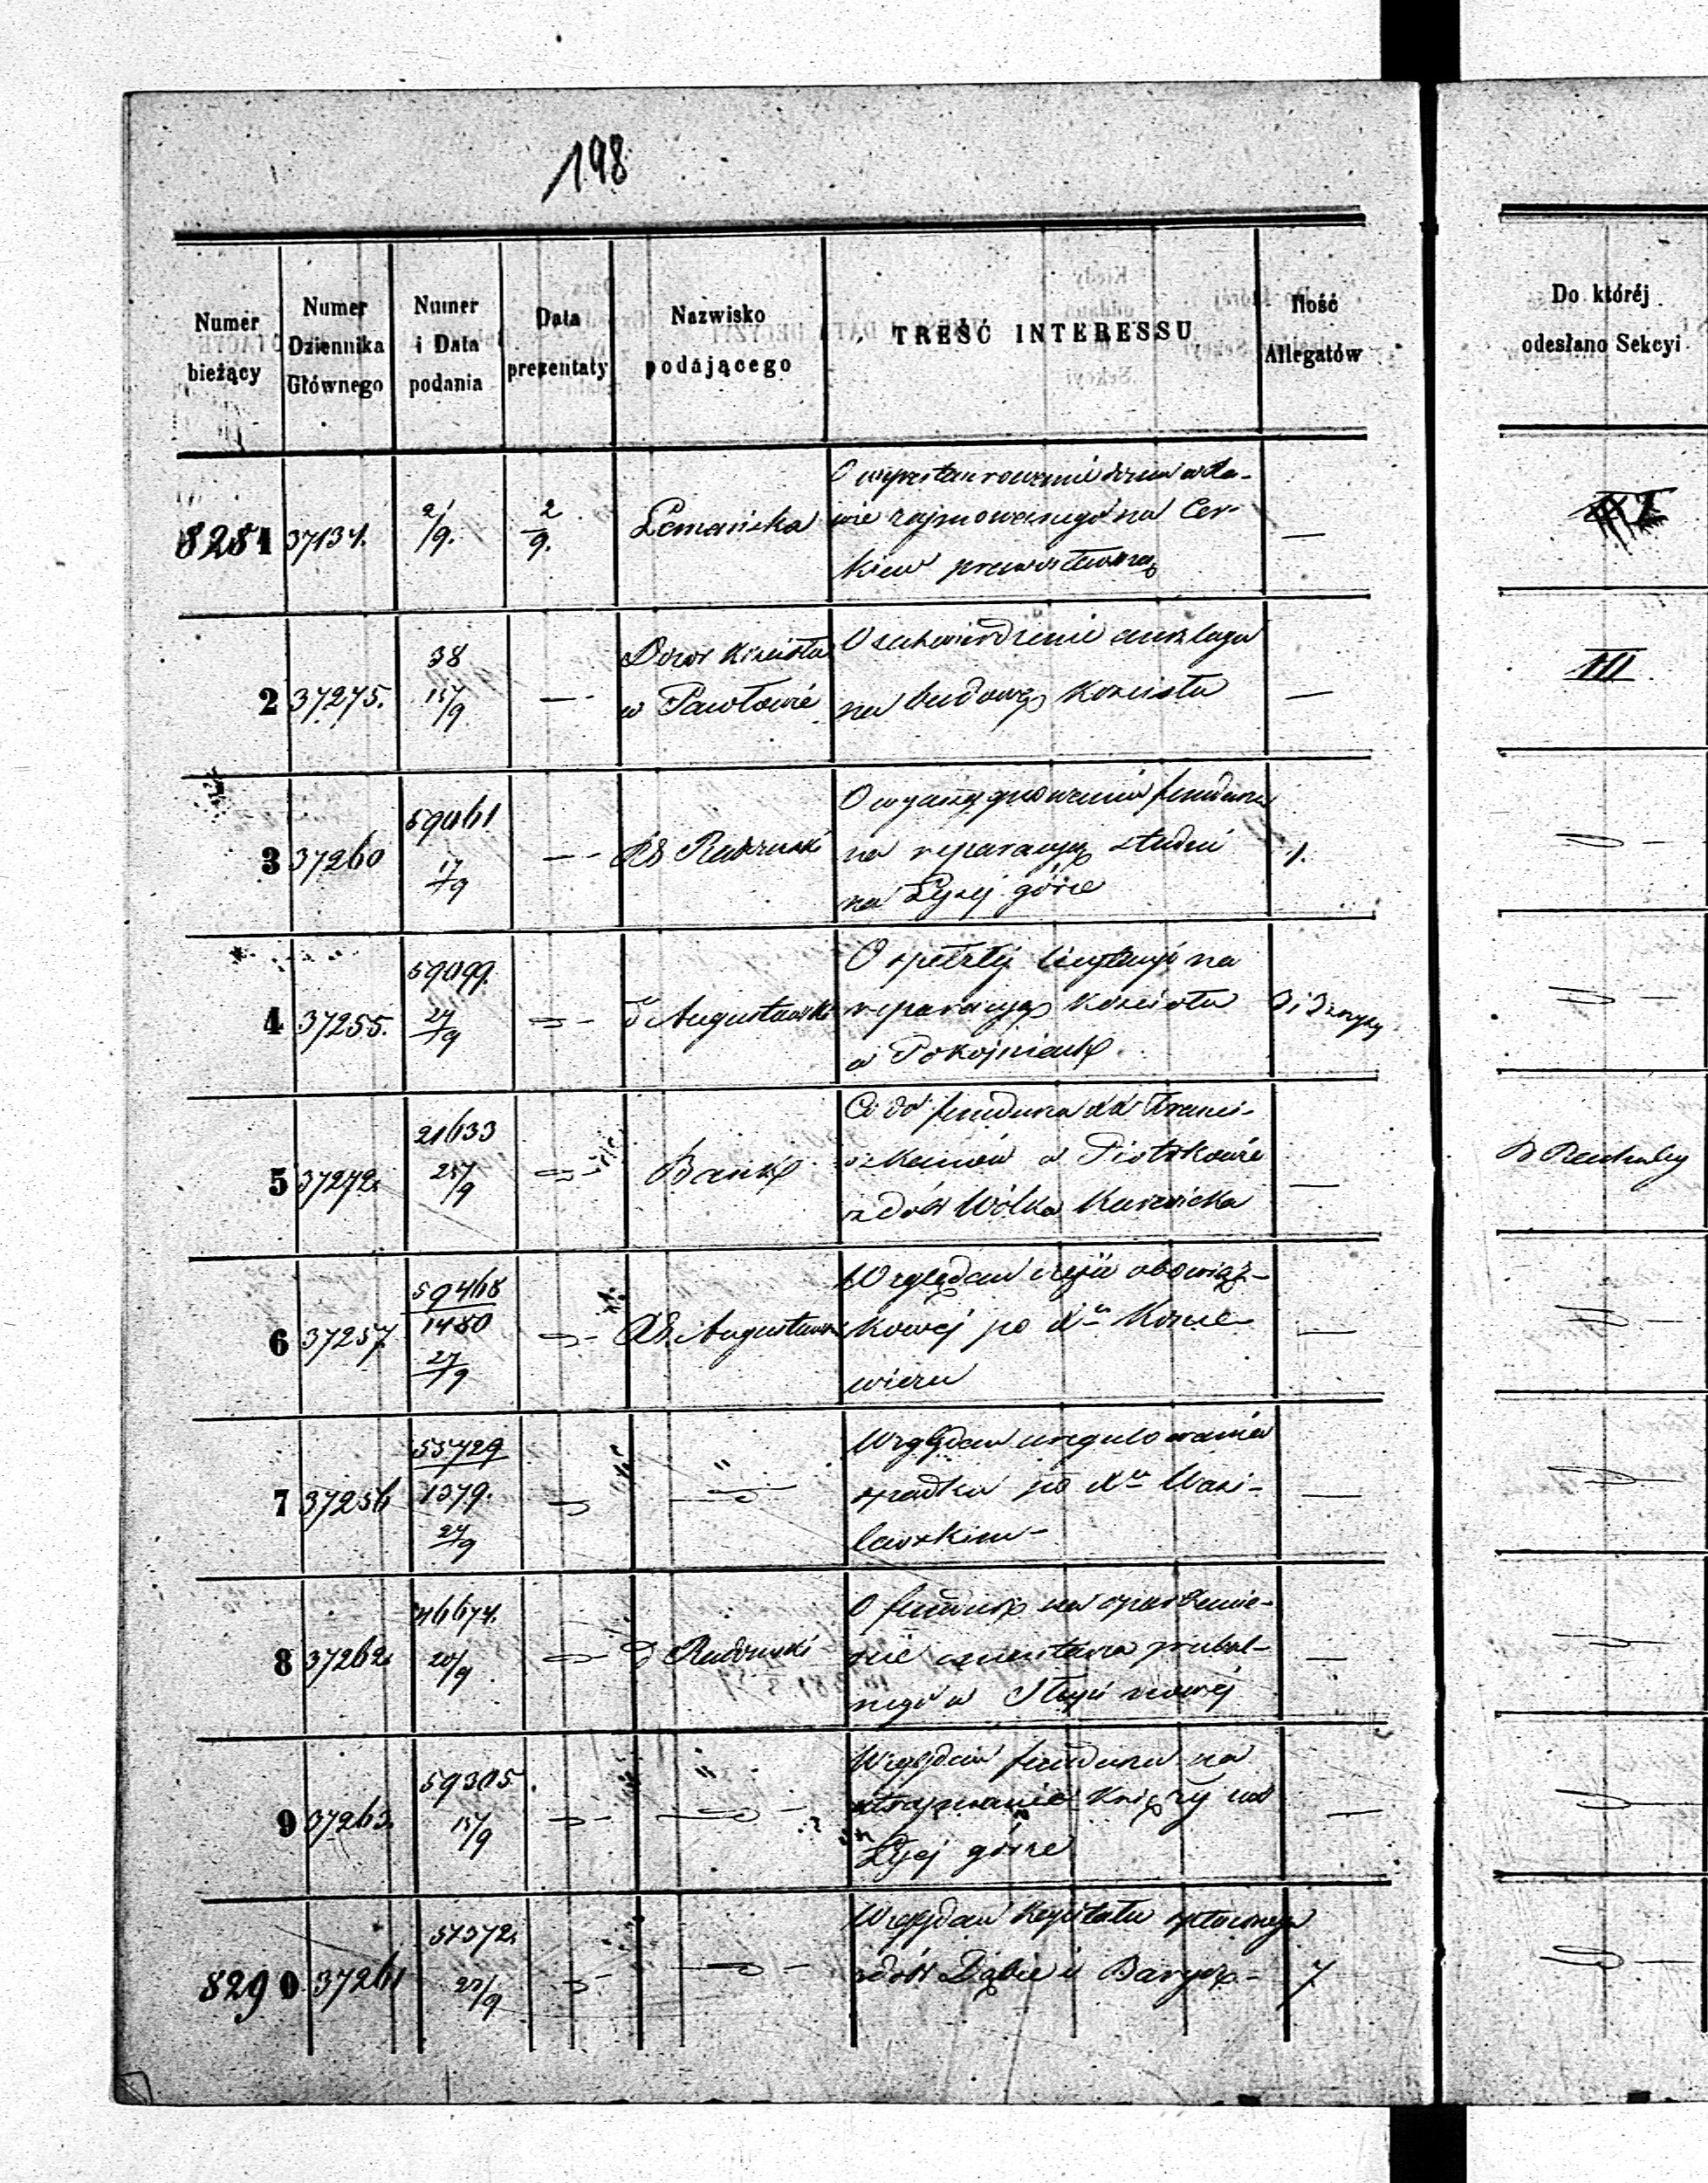 198
Numer bieżący
Numer Dziennika Głównego
Numer i Data podania
Data prezentaty
Nazwisko podającego
TREŚĆ INTERESSU
Ilość Allegatów
Do któréj odesłano Sekcyi
8281 37134. 2/9. 2/9. Lemańska
zajmowanego na Cer-
kiew prawosławną
—
2 37275. 38 15/9 — Dozór Kościoła
w Pawłowie
O zatwierdzenie anszlagu
na budowę Kościoła
—
III
3 37260 59061 17/9 —
O wyassygnowanie funduszu
na reparacyę studni
na Łysej górze
1.
4 37255. 59099. 27/9 Augustowski
O spełzłej licytacyi na
reparacyę Kościoła
w Pokojniach
5 37272. 21633 25/9 Bank
Co do funduszu XX Franci-
szkanów w Piotrkowie
z dóbr Wólka
—
6 37257. 59468 1480 27/9 Augustowski
Względem obowiąz-
kowej po X
—
7 37256 55729 1379. 27/9 "
Względem uregulowania
spadku po X Wasi-
lewskim
—
8 37262. 46674. 20/9 Radomski
O fundusz na
cmentarza
w Słupi nowej
—
9 37263. 59305. 15/9 "
Względem funduszu na
utrzymanie Księży na
Łysej górze
—
8290 37261 57572. 20/9
Względem Kapitału
z dóbr Dąbie i Barycz
7